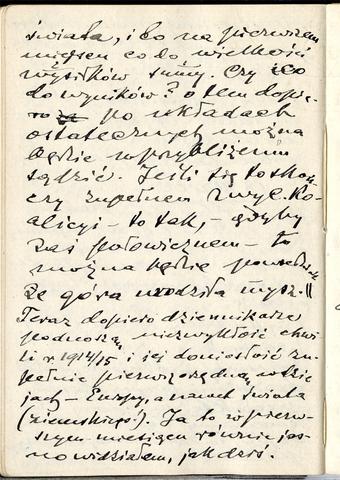 świata, i bo na pierwszem
miejscu co do wielkości
wysiłków sumy. Czy i co
do wyników? o tem dopie-
ro po układach
ostatecznych można
będzie w przybliżeniu
sądzić. Jeśli się to skoń-
czy zupełnem zwyc. Ko-
alicyi – to tak, – gdyby
zaś połowicznem – to
można będzie powiedzieć
że góra urodziła mysz."
Teraz dopiero dziennikarze
podnoszą niezwykłość chwi-
li r 1914/15 i jej doniosłość zu-
pełnie pierwszorzędną w dzie-
jach – Europy, a nawet świata
(ziemskiego). Ja to w pierw-
szym miesiącu równie jas-
no widziałem, jak dziś.